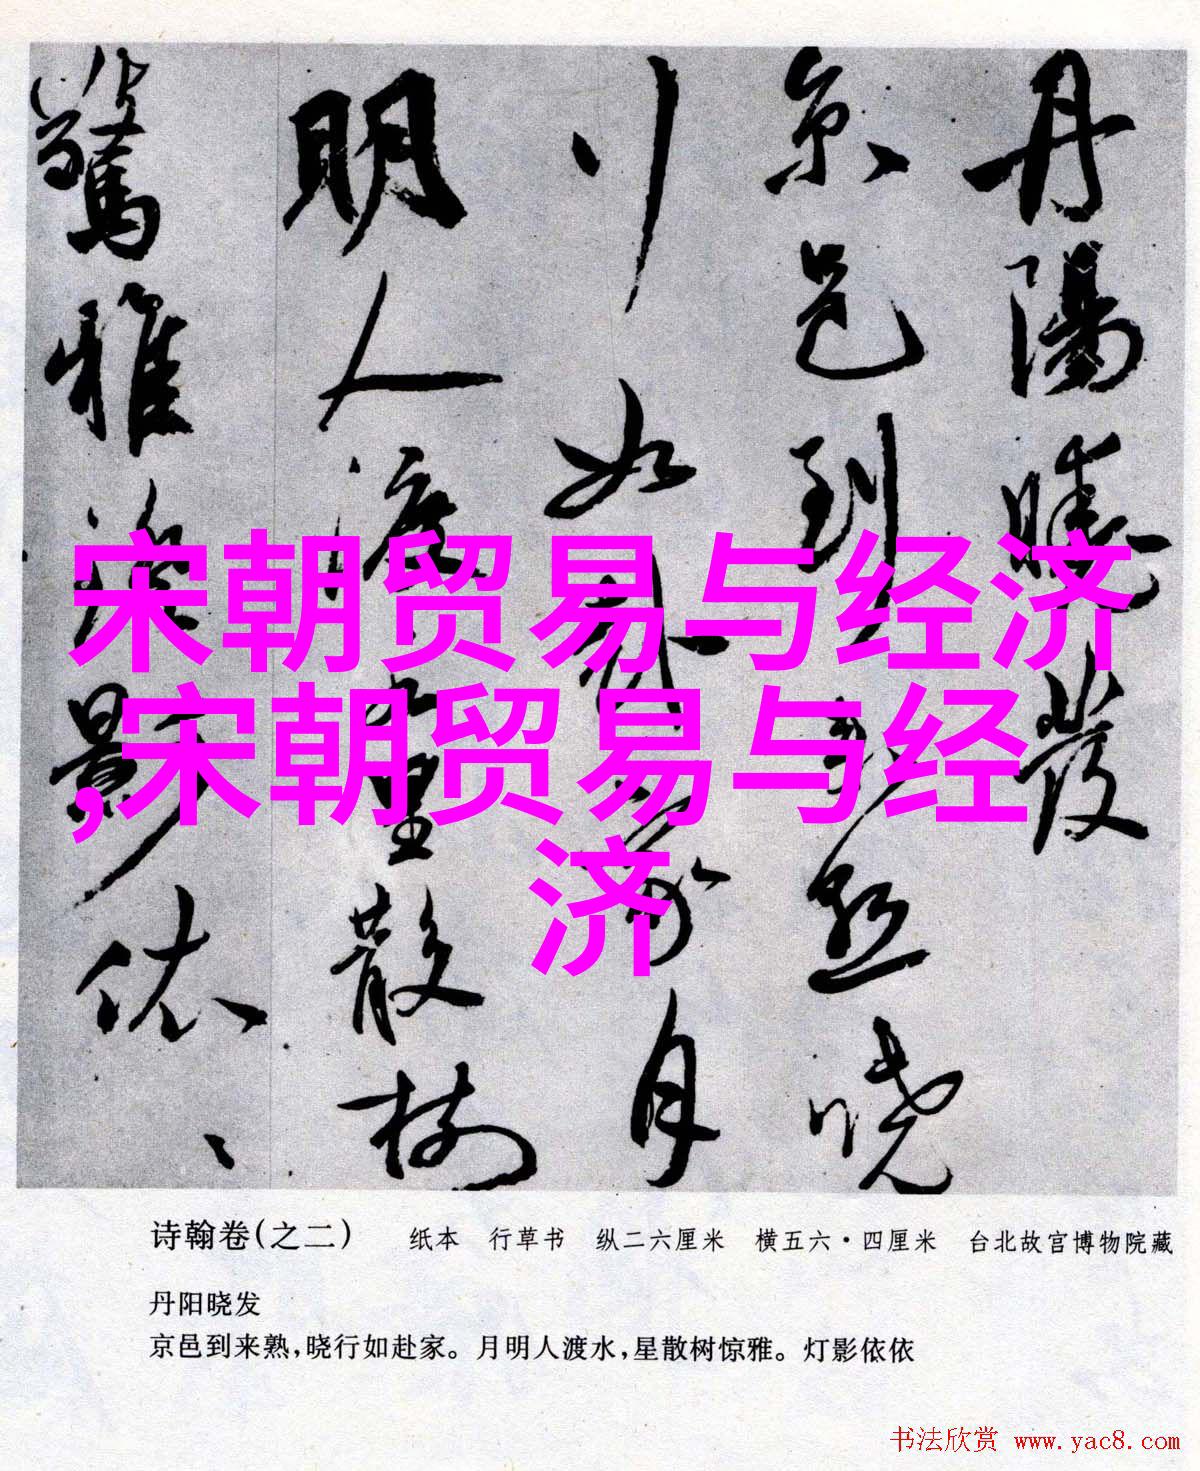 丹陽曉發
京邑到來熟曉
行如赴家月
明人渡水星散樹
驚雅燈影依〻
宋朝贸易与经济
,宋朝贸易与经
济
诗翰卷(之二) 纸本 行草书 纵二六厘米 横五六·四厘米 台北故宫博物院藏
丹阳晓发
京邑到来熟,晓行如赴家。月明人渡水,星散树惊雅。灯影依依
书法欣赏 www.yac8.com